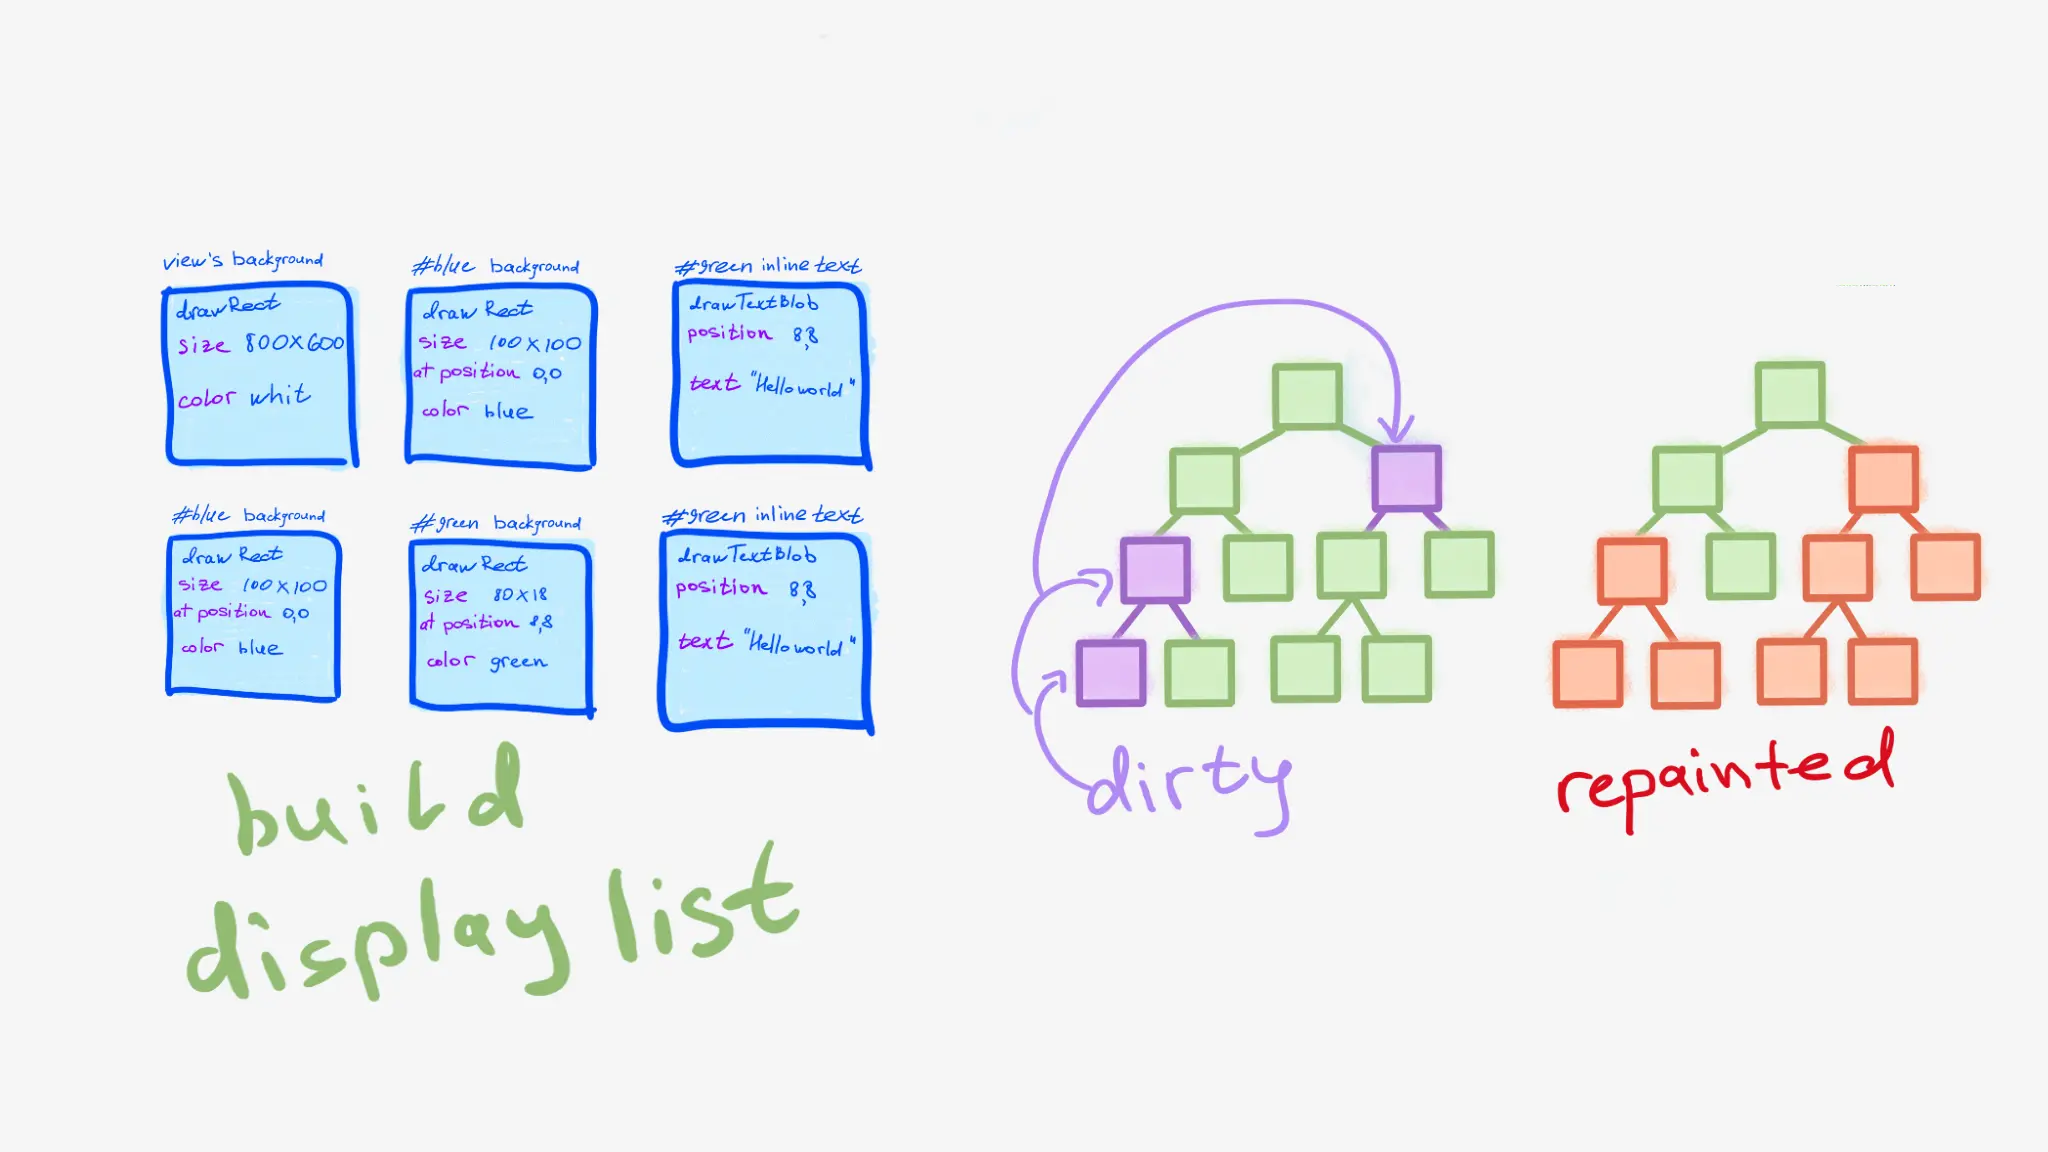 view's background
drawRect
size 800x600
color whit
#blue background
drawRect
size 100x100
at position 0,0
color blue
#green inline text
drawTextBlob
position 8,8
text "Hello world"
#blue background
drawRect
size 100x100
at position 0,0
color blue
#green background
drawRect
size 80x18
at position 8,8
color green
#green inline text
drawTextBlob
position 8,8
text "Hello world"
build
display list
dirty
repainted